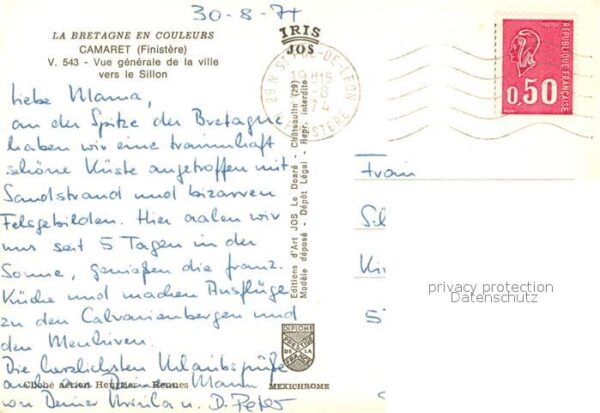 30-8-74
LA BRETAGNE EN COULEURS
CAMARET (Finistère)
V. 543 - Vue générale de la ville
vers le Sillon
IRIS
JOS
29 N ST-POL-DE-LEON
FINISTERE
REPUBLIQUE FRANCAISE
POSTES
0,50
Liebe Mama,
an der Spitze der Bretagne
haben wir eine traumhaft
schöne Küste angetroffen mit
Sandstrand und bizarren
Felsgebilden. Hier aalen wir
uns seit 5 Tagen in der
Sonne, genießen die franz.
Küche und machen Ausflüge
zu den Calvarienbergen und
den Menhiren.
Die herzlichsten Urlaubsgrüße
auch an Deinen Mann
von Deiner Ursula u. D. Peter
Cliché aérien Heurtier - Rennes
Editions d'Art JOS Le Doaré - Châteaulin (29)
Modèle déposé - Dépôt Légal - Repr. interdite
DIPLOME
PRESTIGE
DE LA
FRANCE
MEXICHROME
Frau
privacy protection
Datenschutz